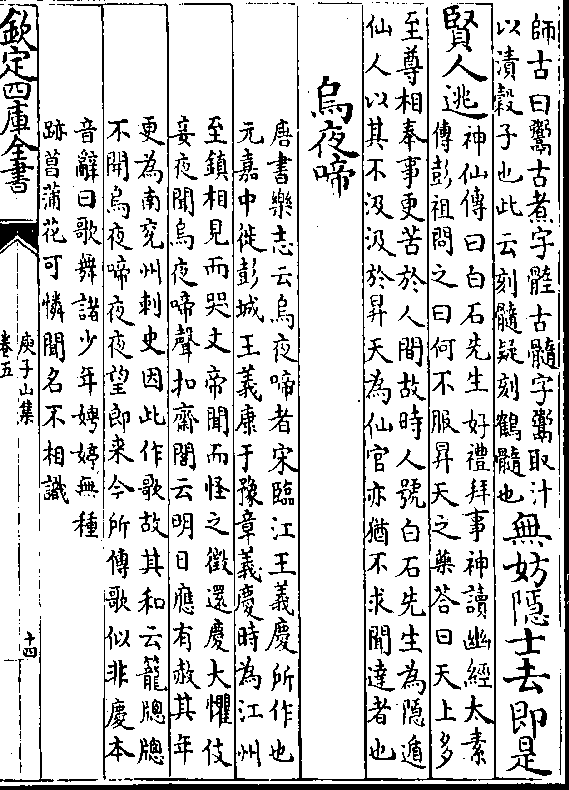 師古曰鬻古煮字髓古髓字鬻取汁
以漬穀子也此云刻髓疑刻鶴髓也
無妨隱士去即是
賢人逃
神仙傳曰白石先生好禮拜事神讀幽經大素
傳彭祖問之曰何不服昇天之藥荅曰天上多
至尊相奉事更苦於人間故時人號白石先生為隱遁
仙人以其不汲汲於昇天為仙官亦猶不求聞達者也
烏夜啼
唐書樂志云烏夜啼者宋臨江王義慶所作也
元嘉中徙彭城王義康于豫章義慶時為江州
至鎮相見而哭文帝聞而怪之徵還慶大懼伎
妾夜聞烏夜啼聲扣齋閤云明日應有赦其年
更為南兖州刺史因此作歌故其和云籠牕牕
不開烏夜啼夜夜望郎来今所傳歌似非慶本
音辭曰歌舞諸少年娉婷無種
跡菖蒲花可憐聞名不相識
欽定四庫全書
庾子山集
卷五
十四